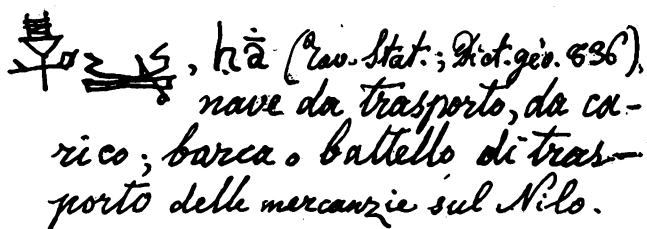 , hǡ (Rav. Stat.; Dict. géo. 836),
nave da trasporto, da ca-
rico; barca o battello di tras-
porto delle mercanzie sul Nilo.